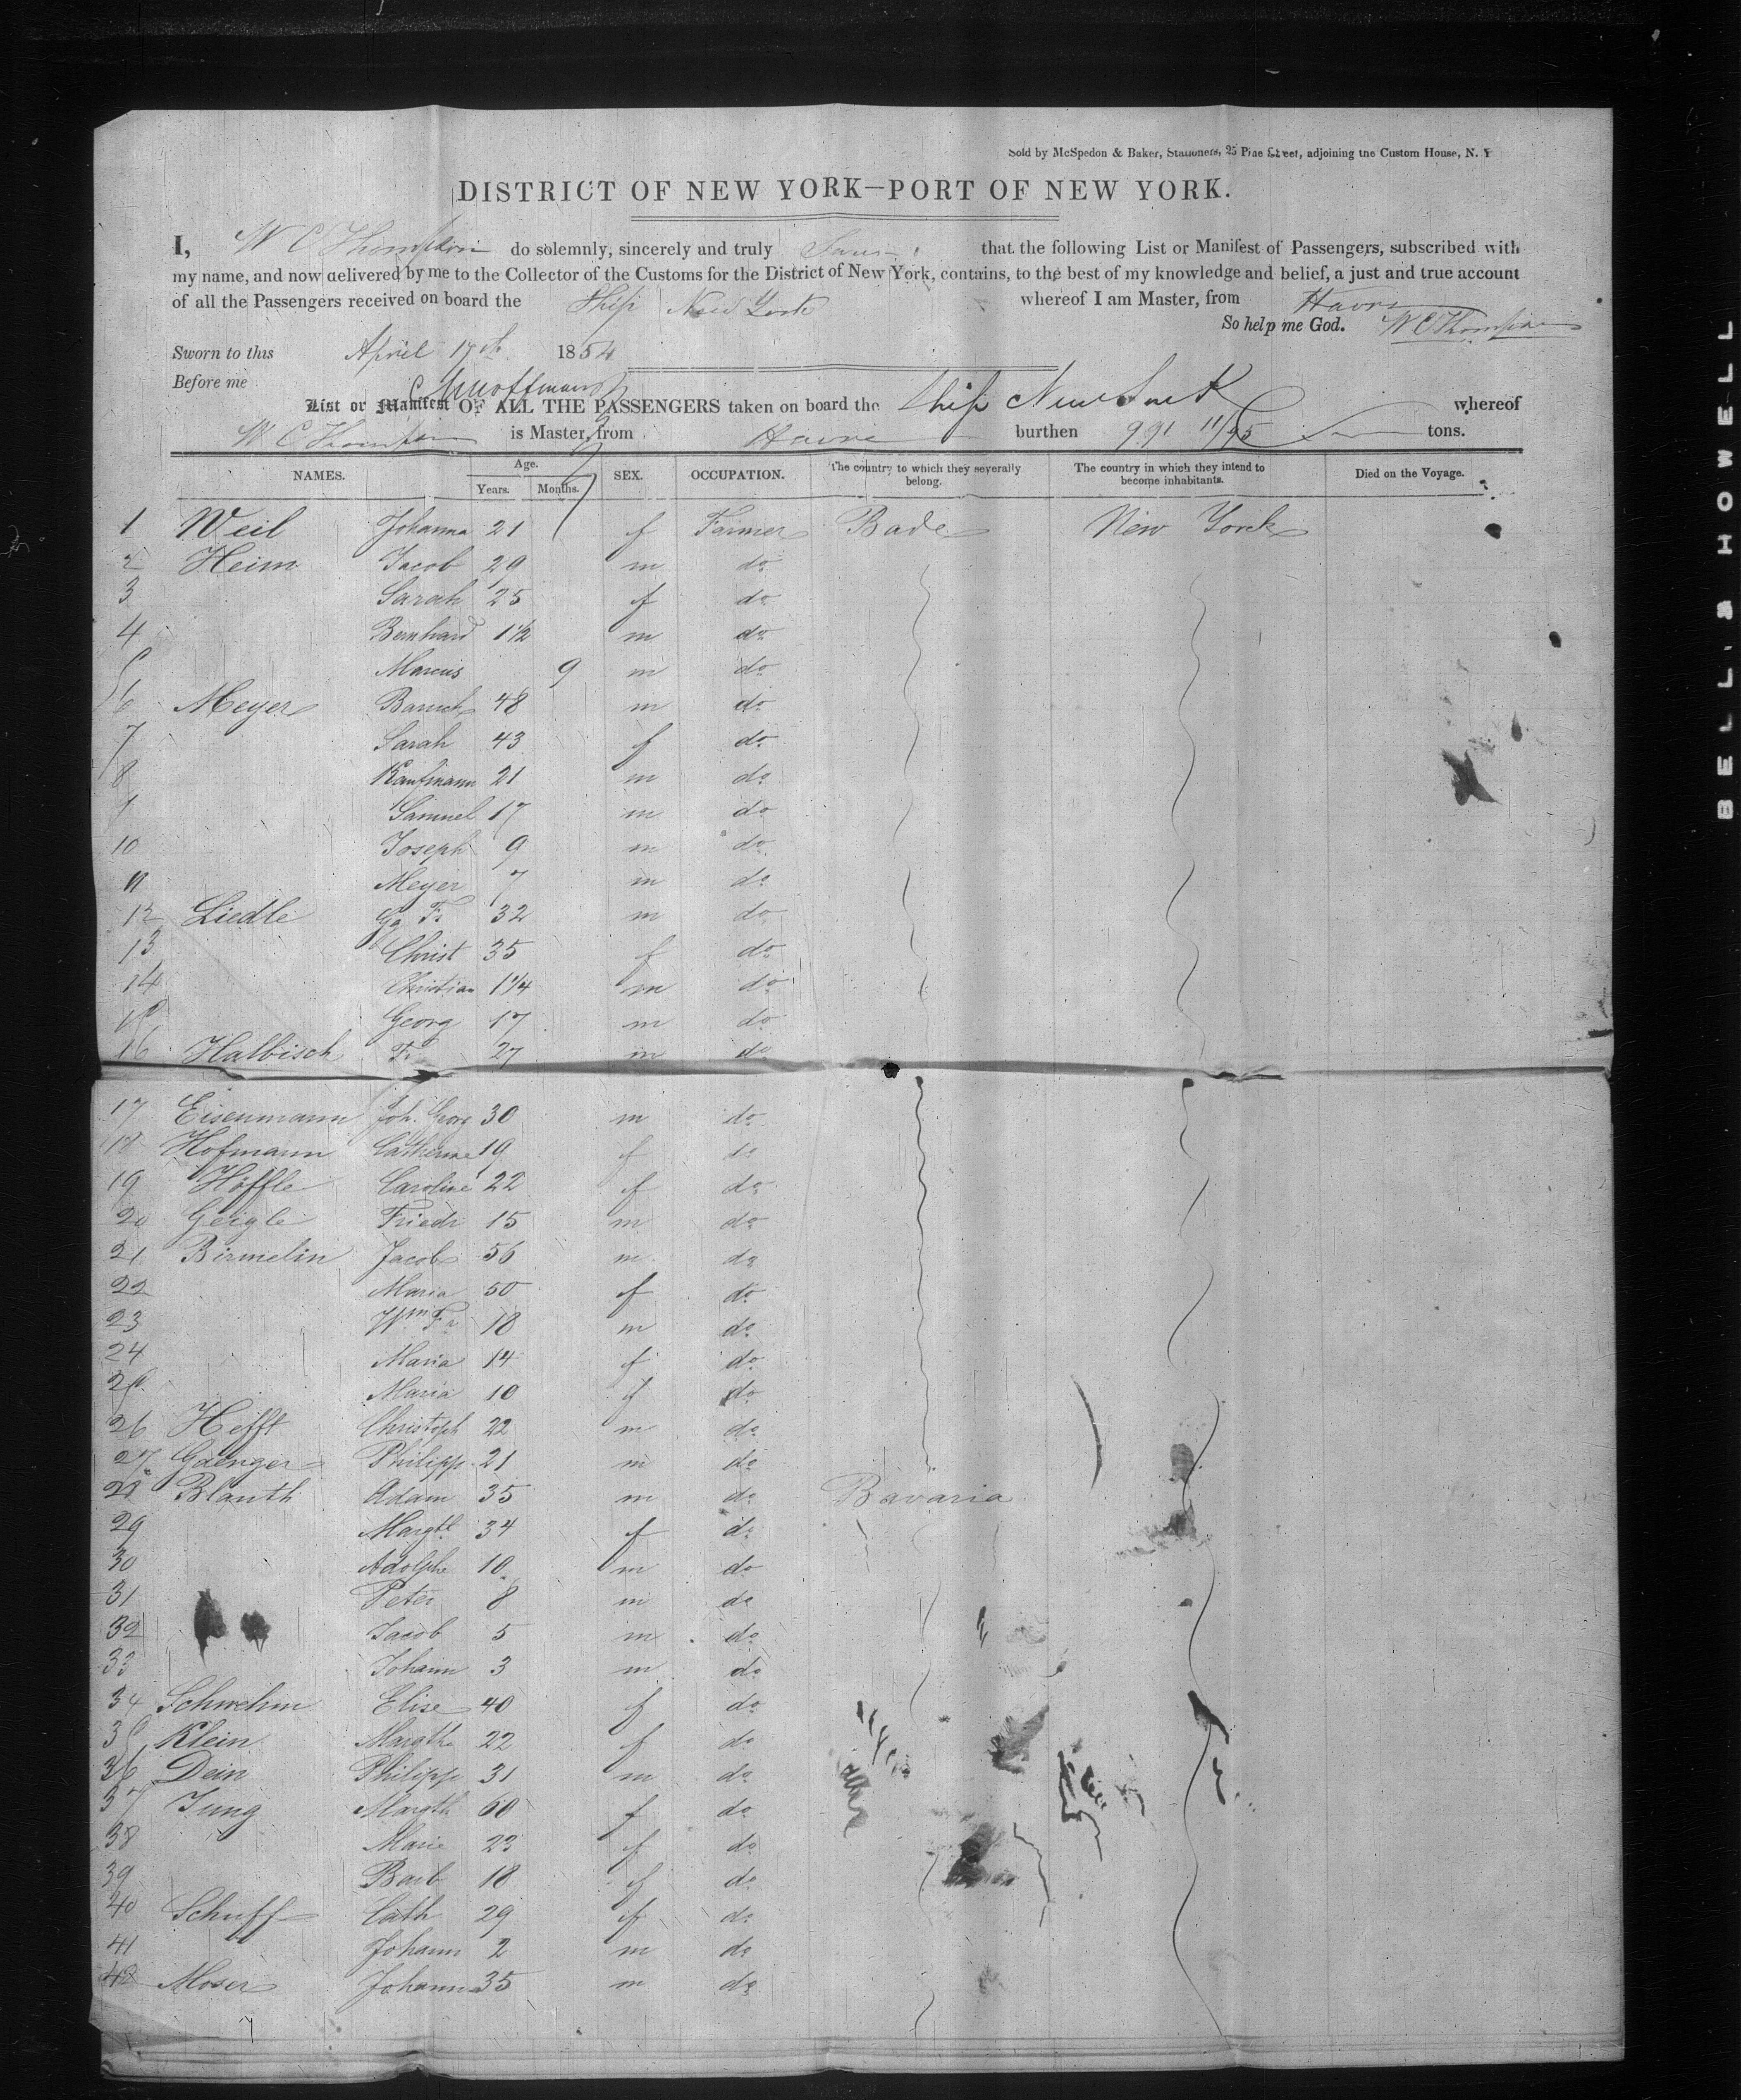 Sold by McSpedon & Baker, Stationers, 25 Pine Street, adjoining the Custom House, N. Y
DISTRICT OF NEW YORK—PORT OF NEW YORK.
I, W C Thompson do solemnly, sincerely and truly that the following List or Manifest of Passengers, subscribed with
my name, and now delivered by me to the Collector of the Customs for the District of New York, contains, to the best of my knowledge and belief, a just and true account
of all the Passengers received on board the Ship New York whereof I am Master, from Havre
So help me God. W C Thompson
Sworn to this April 17th 1854
Before me
List or Manifest OF ALL THE PASSENGERS taken on board the Ship New York whereof
W C Thompson is Master, from Havre burthen 991 11/95 tons.
NAMES. Age. Years. Months. SEX. OCCUPATION. The country to which they severally belong. The country in which they intend to become inhabitants. Died on the Voyage.
1 Weil Johanna 21 f Farmer Bade New Yorck
2 Heim Jacob 29 m do
3 Sarah 25 f do
4 Bernhard 1 1/2 m do
5 Marcus 9 m do
6 Meyer Baruch 48 m do
7 Sarah 43 f do
8 Kaufmann 21 m do
9 Samuel 17 m do
10 Joseph 9 m do
11 Meyer 7 m do
12 Liedle Gg Fr 32 m do
13 Christ 35 f do
14 Christian 1 1/4 m do
15 Georg 17 m do
16 Halbisch Fr 27 m do
17 Eisenmann Joh. Georg 30 m do
18 Hofmann Catherine 19 f do
19 Höffle Caroline 22 f do
20 Geigle Friedr 15 m do
21 Birmelin Jacob 56 m do
22 Maria 50 f do
23 Wm Fr 18 m do
24 Maria 14 f do
25 Maria 10 f do
26 Hefft Christoph 22 m do
27 Gaenger Philipp 21 m do
28 Blauth Adam 35 m do Bavaria
29 Margth 34 f do
30 Adolphe 10 m do
31 Peter 8 m do
32 Jacob 5 m do
33 Johann 3 m do
34 Schwehm Elise 40 f do
35 Klein Margthe 22 f do
36 Dein Philipp 31 m do
37 Jung Margth 60 f do
38 Marie 23 f do
39 Barb 18 f do
40 Schuff Cath 29 f do
41 Johann 2 m do
42 Moser Johann 35 m do
BELL & HOWELL